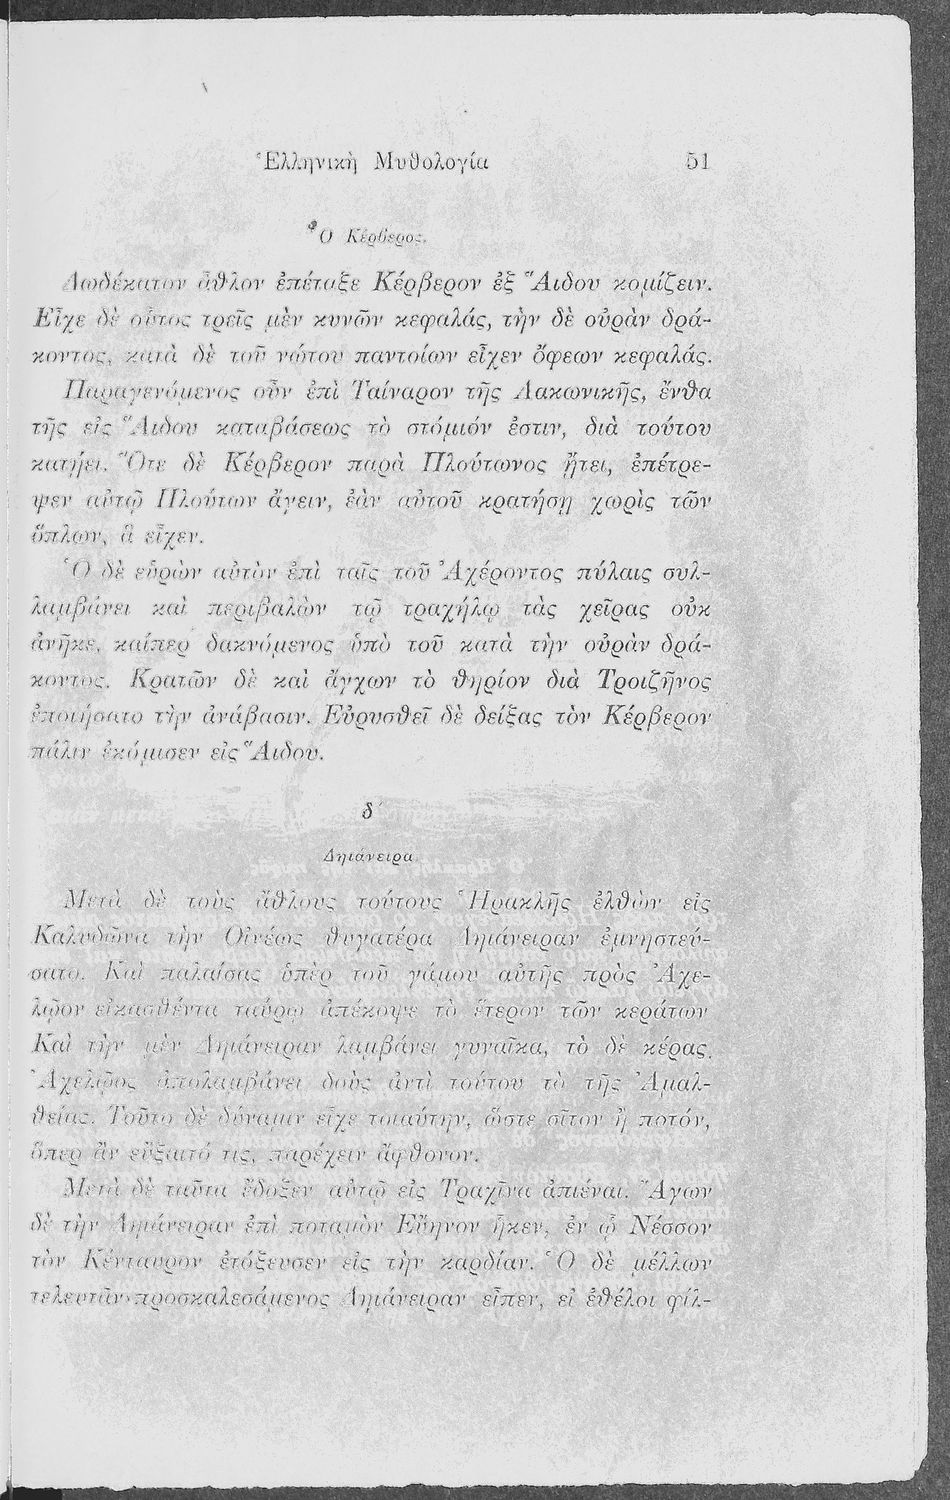 Ἑλληνικὴ Μυθολογία 51
Ὁ Κέρβερος.
Δωδέκατον ἆθλον ἐπέταξε Κέρβερον ἐξ Ἅιδου κομίζειν.
Εἶχε δὲ οὗτος τρεῖς μὲν κυνῶν κεφαλάς, τὴν δὲ οὐρὰν δρά-
κοντος, κατὰ δὲ τοῦ νώτου παντοίων εἶχεν ὄφεων κεφαλάς.
Παραγενόμενος οὖν ἐπὶ Ταίναρον τῆς Λακωνικῆς, ἔνθα
τῆς εἰς Ἅιδου καταβάσεως τὸ στόμιόν ἐστιν, διὰ τούτου
κατῄει. Ὅτε δὲ Κέρβερον παρὰ Πλούτωνος ᾔτει, ἐπέτρε-
ψεν αὐτῷ Πλούτων ἄγειν, ἐὰν αὐτοῦ κρατήσῃ χωρὶς τῶν
ὅπλων, ἃ εἶχεν.
Ὁ δὲ εὑρὼν αὐτὸν ἐπὶ ταῖς τοῦ Ἀχέροντος πύλαις συλ-
λαμβάνει καὶ περιβαλὼν τῷ τραχήλῳ τὰς χεῖρας οὐκ
ἀνῆκε, καίπερ δακνόμενος ὑπὸ τοῦ κατὰ τὴν οὐρὰν δρά-
κοντος. Κρατῶν δὲ καὶ ἄγχων τὸ θηρίον διὰ Τροιζῆνος
ἐποιήσατο τὴν ἀνάβασιν. Εὐρυσθεῖ δὲ δείξας τὸν Κέρβερον
πάλιν ἐκόμισεν εἰς Ἅιδου.
δ´
Δηιάνειρα
Μετὰ δὲ τοὺς ἄθλους τούτους Ἡρακλῆς ἐλθὼν εἰς
Καλυδῶνα τὴν Οἰνέως θυγατέρα Δηιάνειραν ἐμνηστεύ-
σατο. Καὶ παλαίσας ὑπὲρ τοῦ γάμου αὐτῆς πρὸς Ἀχε-
λῷον εἰκασθέντα ταύρῳ ἀπέκοψε τὸ ἕτερον τῶν κεράτων
Καὶ τὴν μὲν Δηιάνειραν λαμβάνει γυναῖκα, τὸ δὲ κέρας
Ἀχελῷος ἀπολαμβάνει δοὺς ἀντὶ τούτου τὸ τῆς Ἀμαλ-
θείας. Τοῦτο δὲ δύναμιν εἶχε τοιαύτην, ὥστε σῖτον ἢ ποτόν,
ὅπερ ἂν εὔξαιτό τις, παρέχειν ἄφθονον.
Μετὰ δὲ ταῦτα ἔδοξεν αὐτῷ εἰς Τραχῖνα ἀπιέναι. Ἄγων
δὲ τὴν Δηιάνειραν ἐπὶ ποταμὸν Εὔηνον ἧκεν, ἐν ᾧ Νέσσον
τὸν Κένταυρον ἐτόξευσεν εἰς τὴν καρδίαν. Ὁ δὲ μέλλων
τελευτᾶν προσκαλεσάμενος Δηιάνειραν εἶπεν, εἰ ἐθέλοι φίλ-